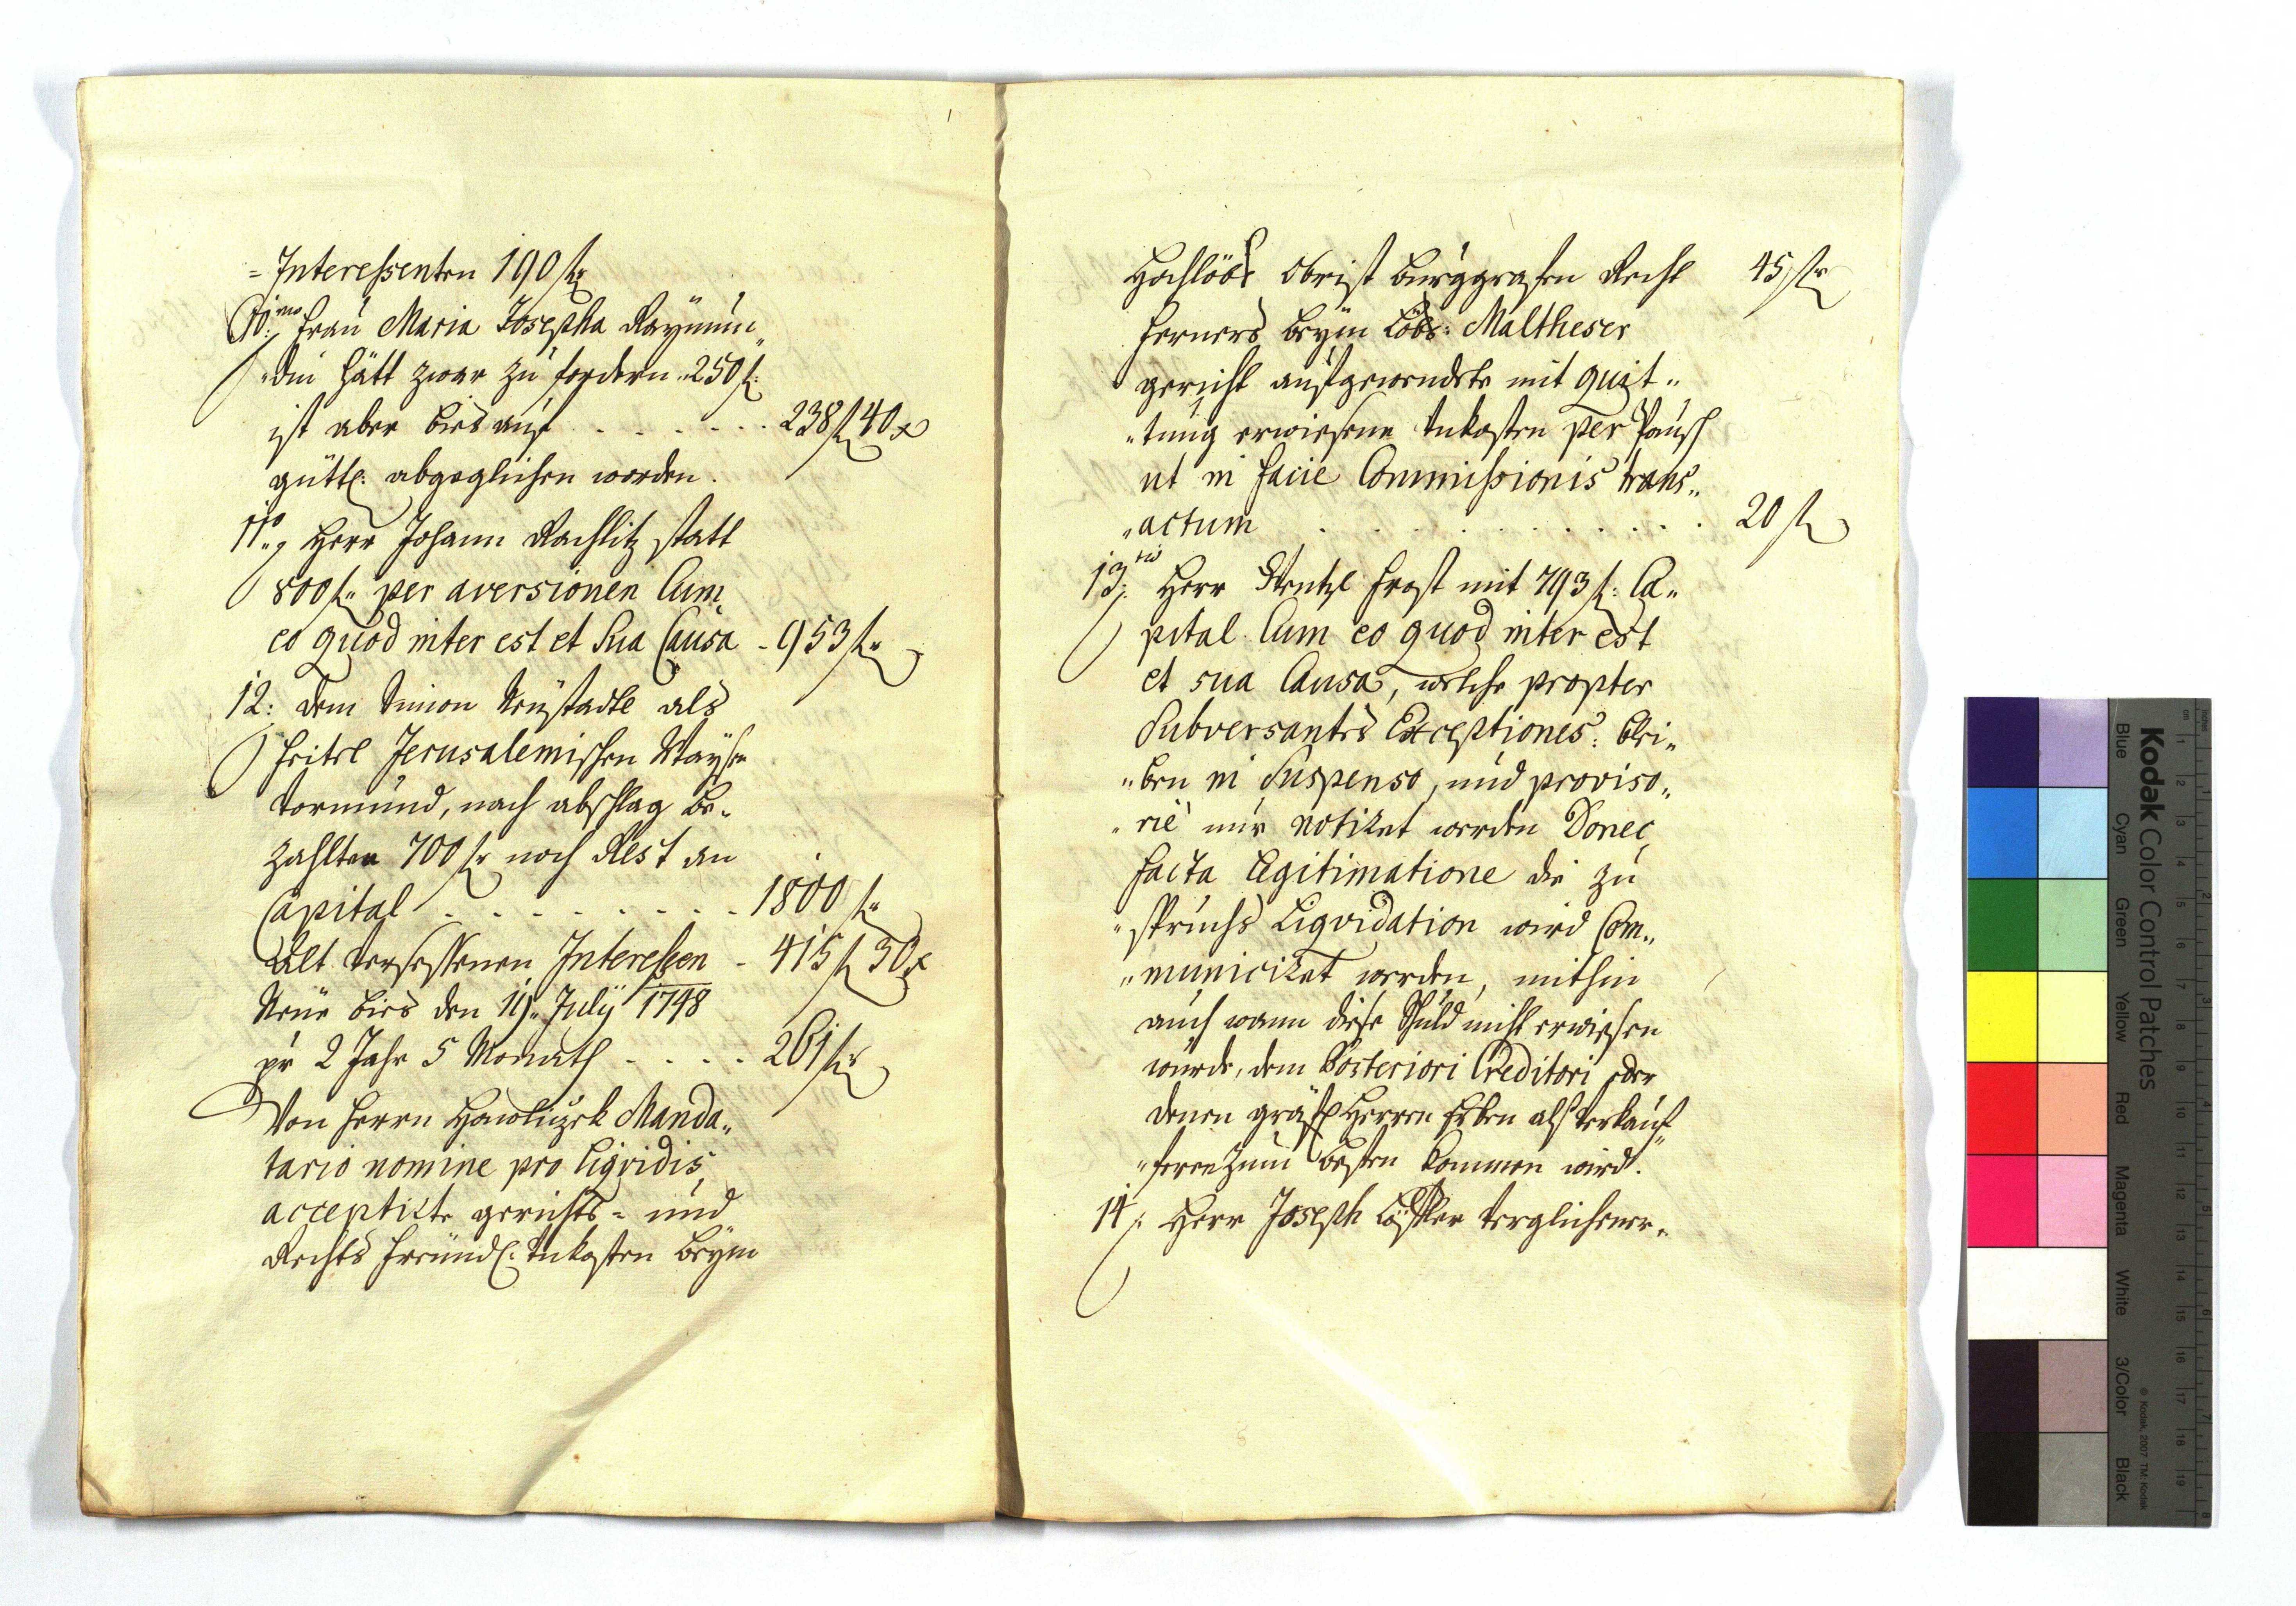 =Interessenten 190 fr
10:mo Frau Maria Josepha Raymun„
„din hätt zwar zu fordern 250 f:
ist aber bies auf . . . . . . 238 f 40 x
güttl: abgeglichen worden.
11o„ Herr Johann Rachlitz statt
800 f„ per aversionen Cum
eo quod inter est et Sua Causa - 953 f„
12: dem Simon Neustadtl als
Feitel Jerusalemischen Waysen
Vormund, nach abschlag be„
zahlten 700 fr noch Rest an
Capital . . . . . . . . 1800 f„
Alt versessenen Interessen - 415 f 30 x
Neue bies den 19„ July 1748
pr 2 Jahr 5 Monath - . . . . 261 fr
Von Herrn Hawliczek Manda„
tario nomine pro liqvidis
acceptirte gerichts= und
Rechts freundl: Unkosten beym
Hochlöbl Obrist Burggrafen Recht 45 fr
ferners beym Löbl: Maltheser
gericht aufgewendete mit quit„
„tung erwiesene Unkosten per Pausch
ut in facie Commissionis trans„
„actum . . . . . . . . . 20 f
13:tio Herr Wentzl Frost mit 793 f: Ca„
pital Cum eo quod inter est
et sua Causa, welche propter
Subversantes Exceptiones: blei„
„ben in Suspenso, und proviso„
„rie nur notiret werden Donec
facta legitimatione die zu
„spruchs Liqvidation wird Com„
„municiret werden, mithin
auch wann diese Schuld nicht erwiesen
wurde, dem Posteriori Creditori oder
denen gräfl Herren Erben als Verkauf„
„feren zum besten kommen wird.
14: Herr Joseph Löffler verglichener„
Kodak Color Control Patches
Blue
Cyan
Green
Yellow
Red
Magenta
White
3/Color
Black
© Kodak, 2007 TM: Kodak